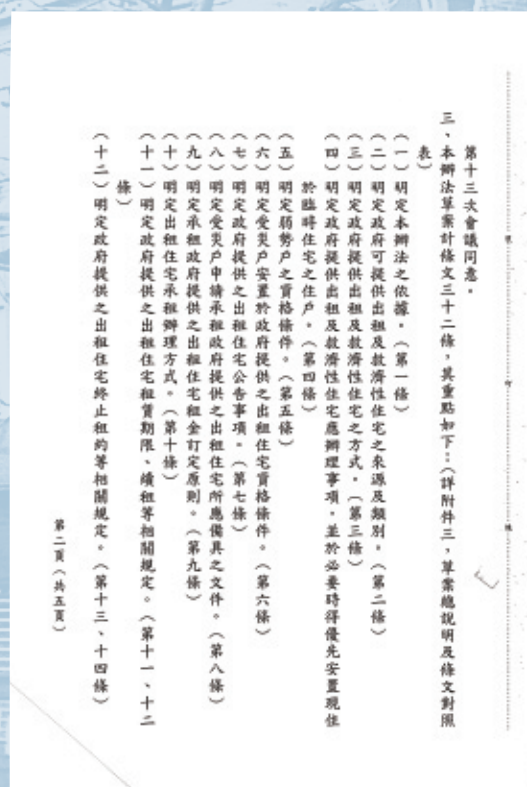 第十三次會議同意。
三、本辦法草案計條文三十二條,其重點如下:(詳附件三,草案總說明及條文對照
表)
(一)明定本辦法之依據。(第一條)
(二)明定政府可提供出租及救濟性住宅之來源及類別。(第二條)
(三)明定政府提供出租及救濟性住宅之方式。(第三條)
(四)明定政府提供出租及救濟性住宅應辦理事項,並於必要時得優先安置現住
於臨時住宅之住戶。(第四條)
(五)明定弱勢戶之資格條件。(第五條)
(六)明定受災戶安置於政府提供之出租住宅資格條件。(第六條)
(七)明定政府提供之出租住宅公告事項。(第七條)
(八)明定受災戶申請承租政府提供之出租住宅所應備具之文件。(第八條)
(九)明定承租政府提供之出租住宅租金訂定原則。(第九條)
(十)明定出租住宅承租辦理方式。(第十條)
(十一)明定政府提供之出租住宅租賃期限、續租等相關規定。(第十一、十二
條)
(十二)明定政府提供之出租住宅終止租約等相關規定。(第十三、十四條)
第二頁(共五頁)